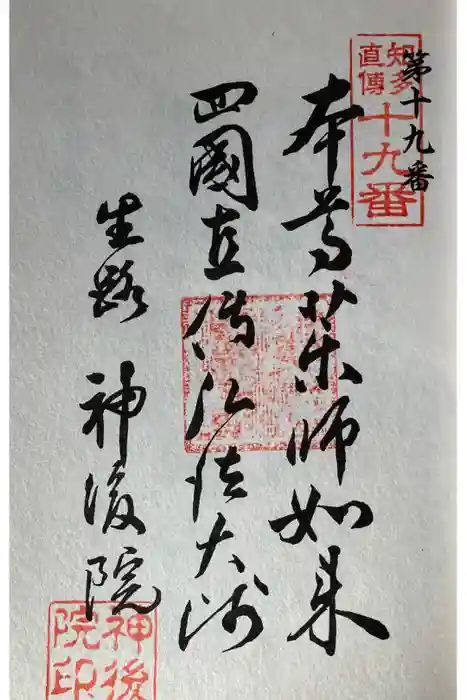 第十九番
知多
直傳
十九番
本尊薬師如来
四國直傳弘法大師
生路 神後院
神後
院印